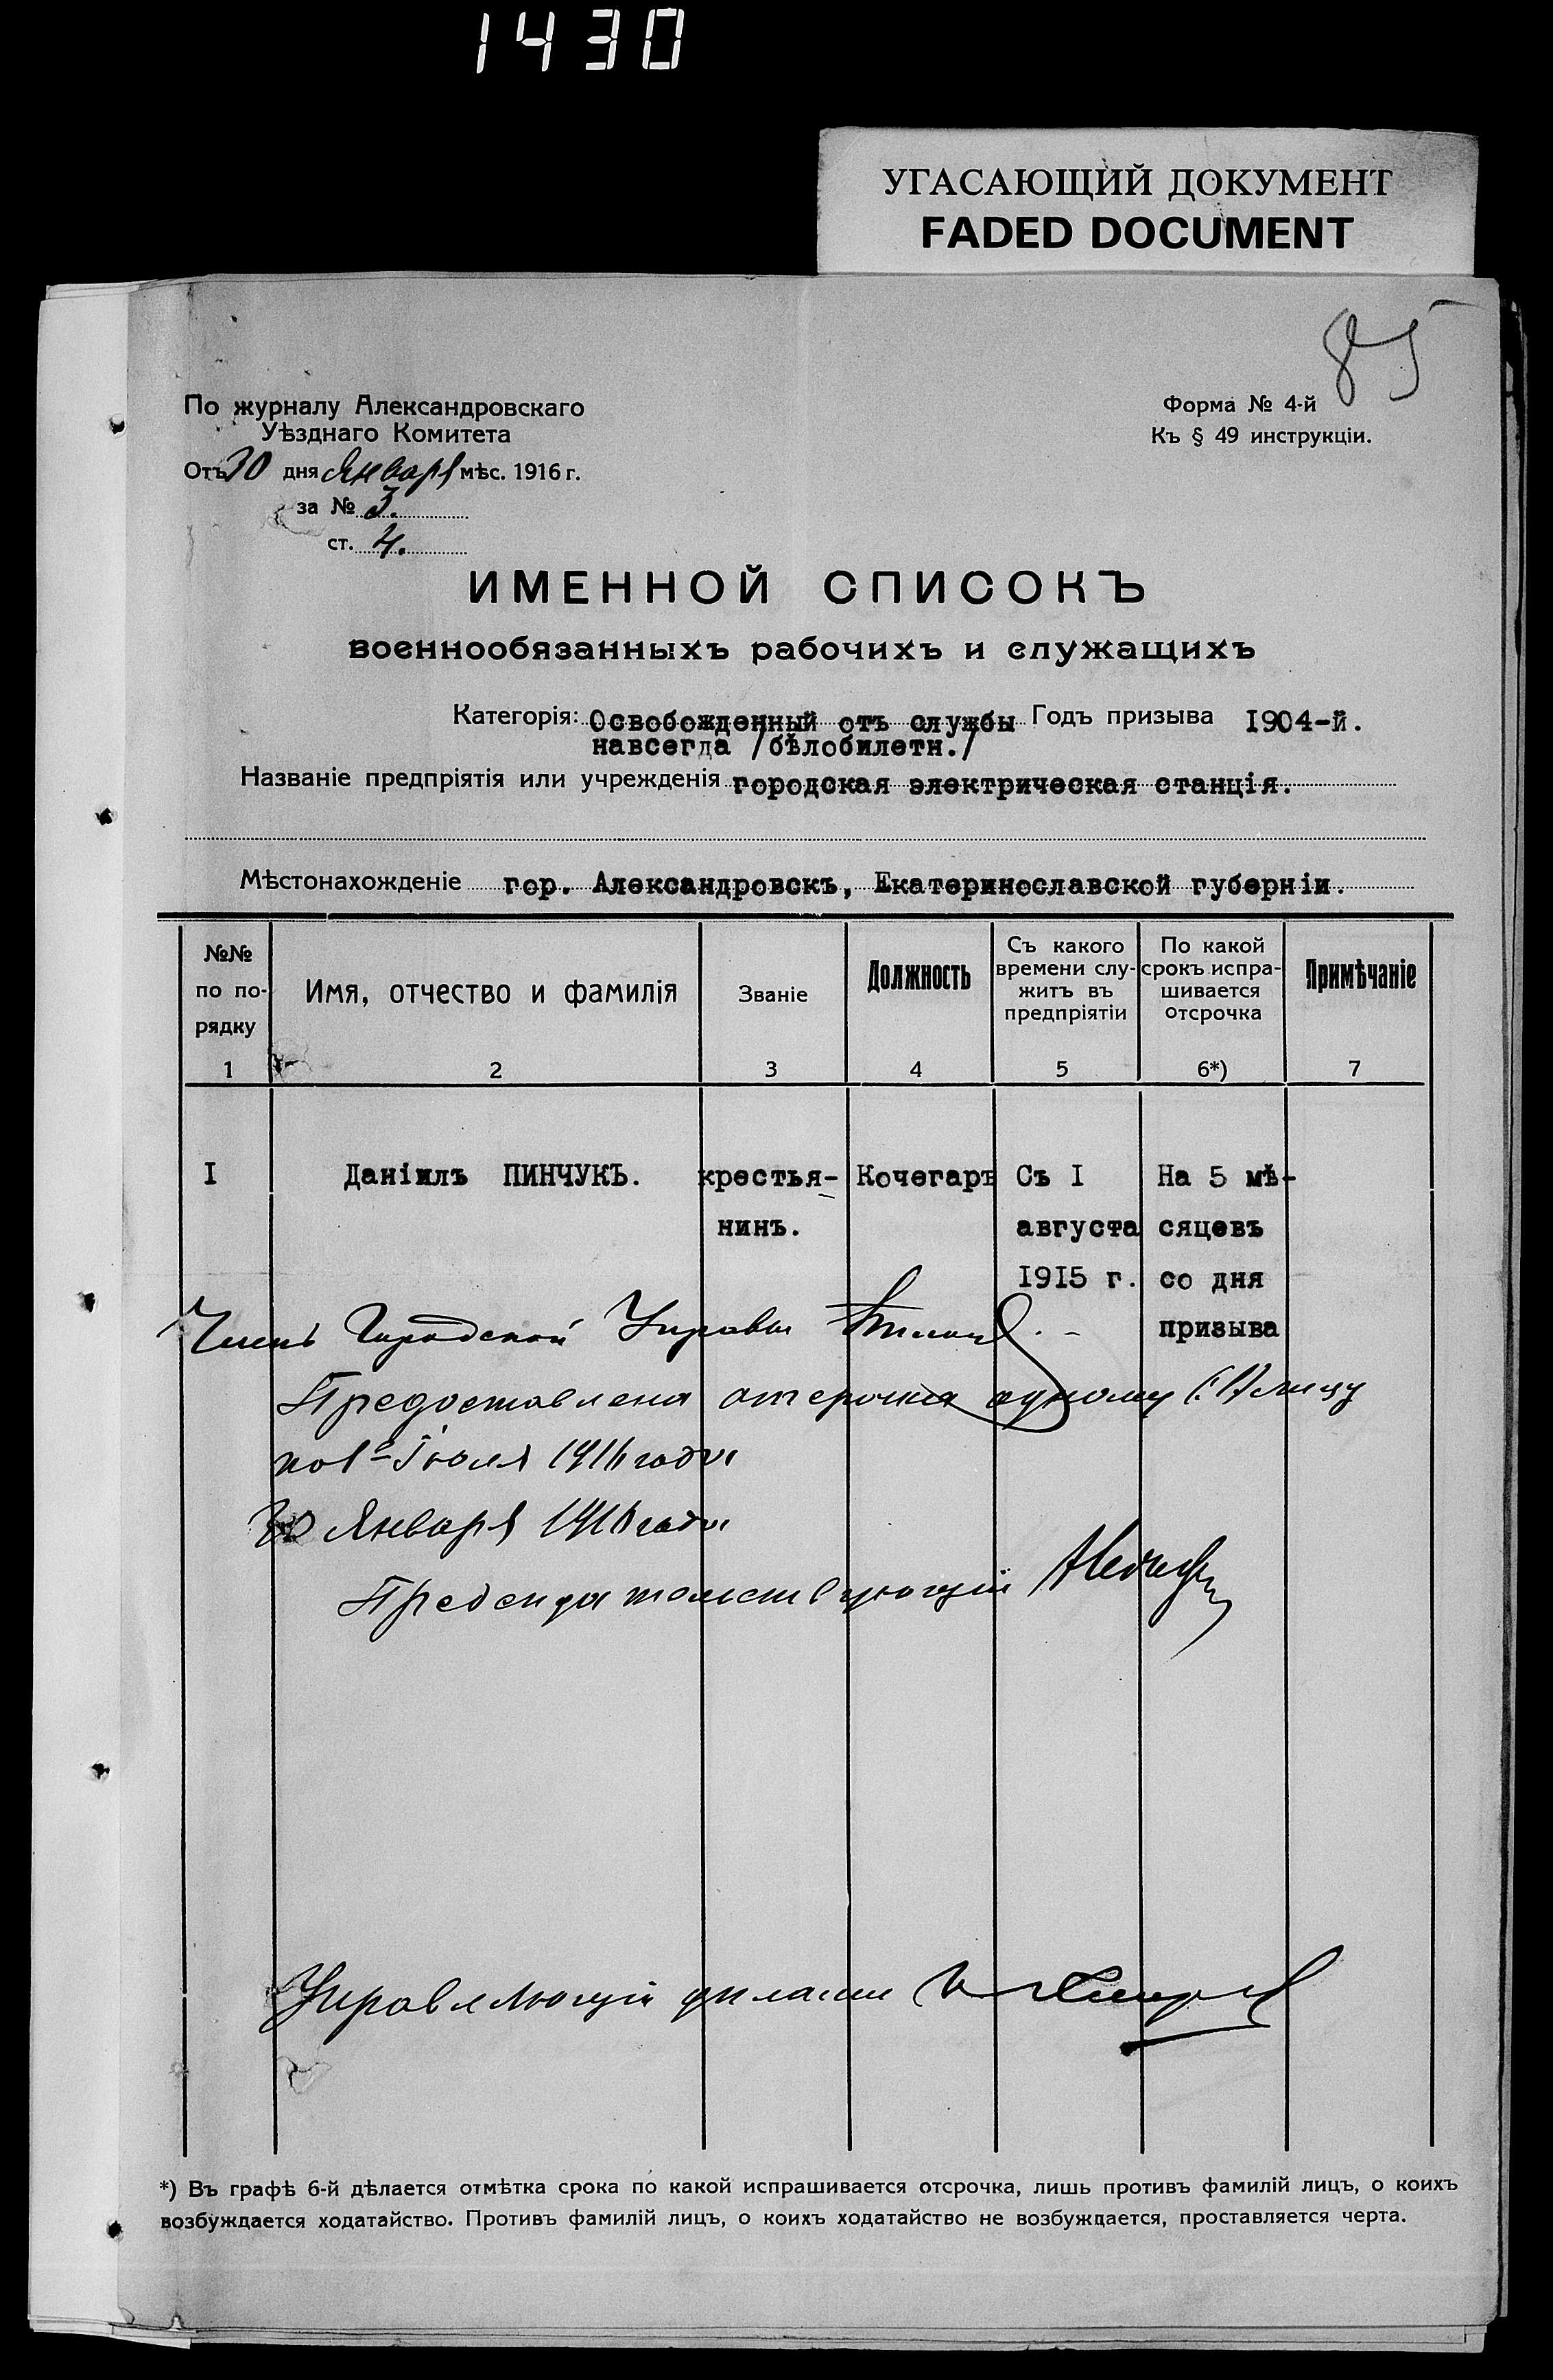 1430
УГАСАЮЩИЙ ДОКУМЕНТ
FADED DOCUMENT
85
По журналу Александровскаго
Уѣзднаго Комитета
Отъ 30 дня Января мѣс. 1916 г.
за № 3.
ст. 4.
Форма № 4-й
Къ § 49 инструкціи.
ИМЕННОЙ СПИСОКЪ
военнообязанныхъ рабочихъ и служащихъ
Категорія: Освобожденный отъ службы Годъ призыва 1904-й.
навсегда /бѣлобилетн./
Названіе предпріятія или учрежденія городская электрическая станція.
Мѣстонахожденіе гор. Александровскъ, Екатеринославской губерніи.
№№ по по-рядку
Имя, отчество и фамилія
Званіе
Должность
Съ какого времени слу-житъ въ предпріятіи
По какой срокъ испра-шивается отсрочка
Примѣчаніе
1 2 3 4 5 6*) 7
I Даніилъ ПИНЧУКЪ. крестья- Кочегаръ Съ I На 5 мѣ-
нинъ. августа сяцевъ
1915 г. со дня
призыва
Членъ Городской Управы
Предоставлена отсрочка одному (1) лицу
по 1е Іюля 1916 года
30 Января 1916 года
Предсѣдательствующій
Управляющій дѣлами
*) Въ графѣ 6-й дѣлается отмѣтка срока по какой испрашивается отсрочка, лишь противъ фамилій лицъ, о коихъ
возбуждается ходатайство. Противъ фамилій лицъ, о коихъ ходатайство не возбуждается, проставляется черта.